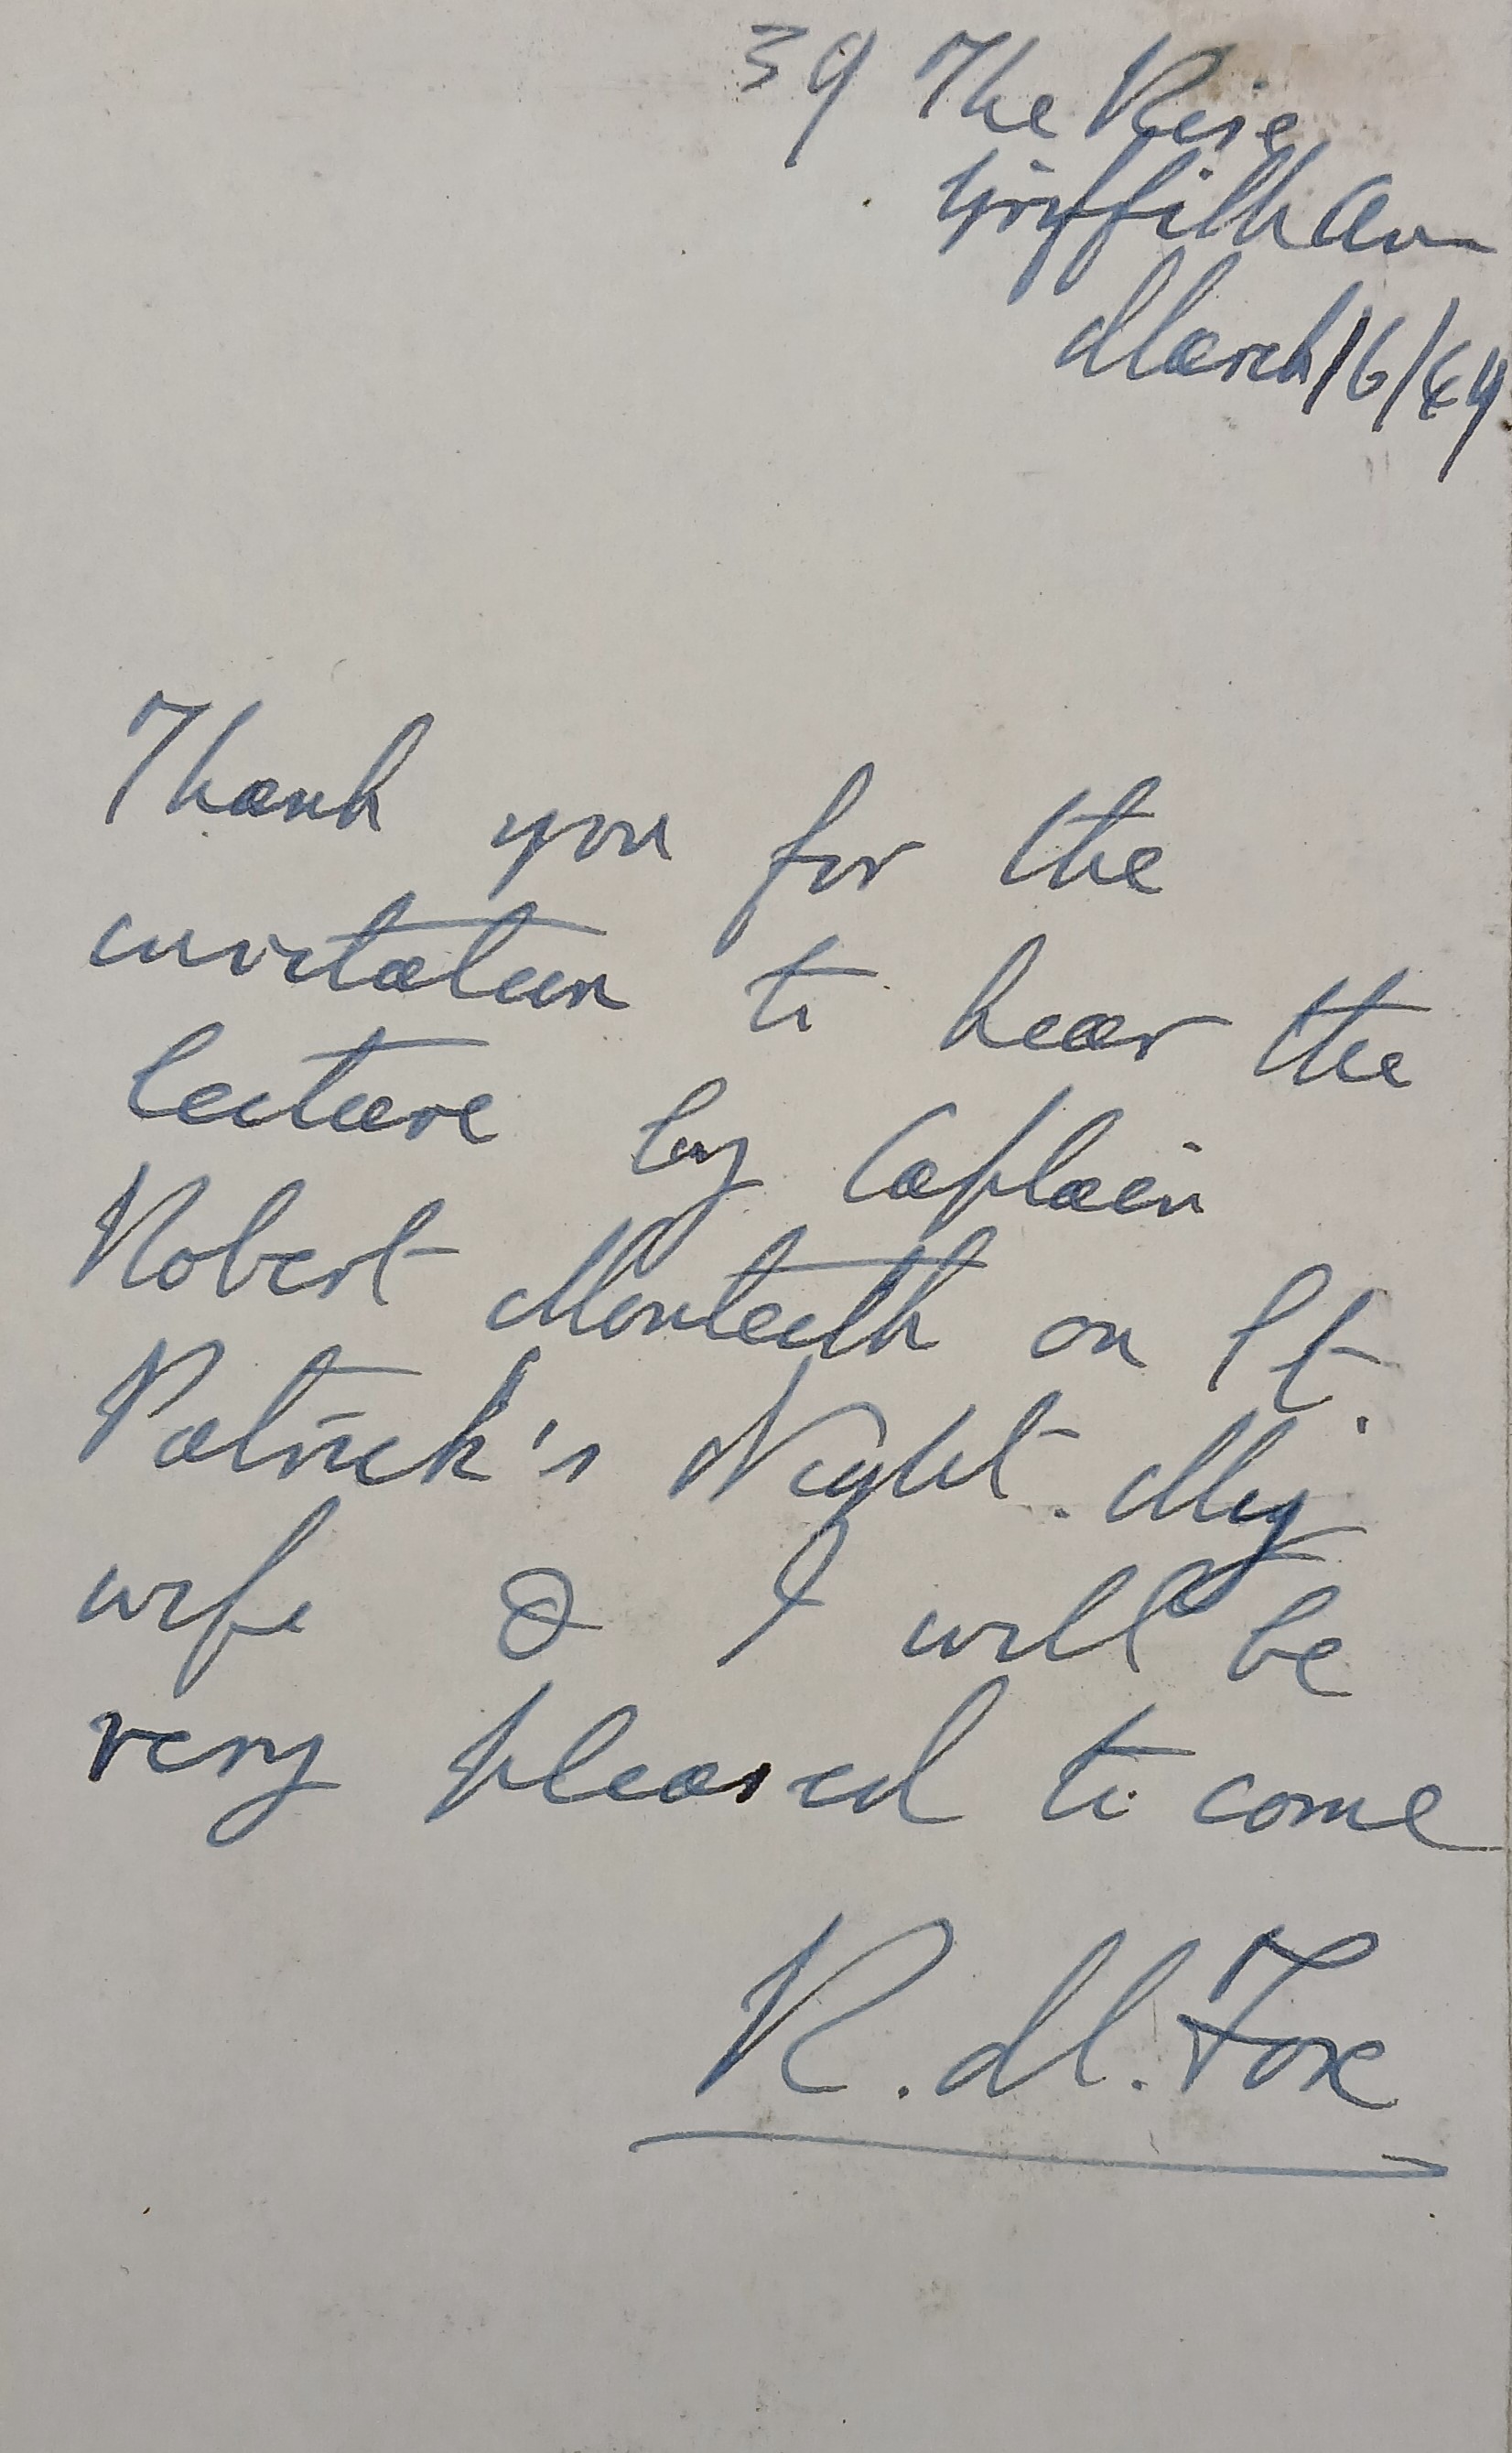 39 The Rise
Griffith Av
March 16/49
Thank you for the
invitation to hear the
lecture by Captain
Robert Monteith on St.
Patrick's Night. My
wife & I will be
very pleased to come
R. M. Fox